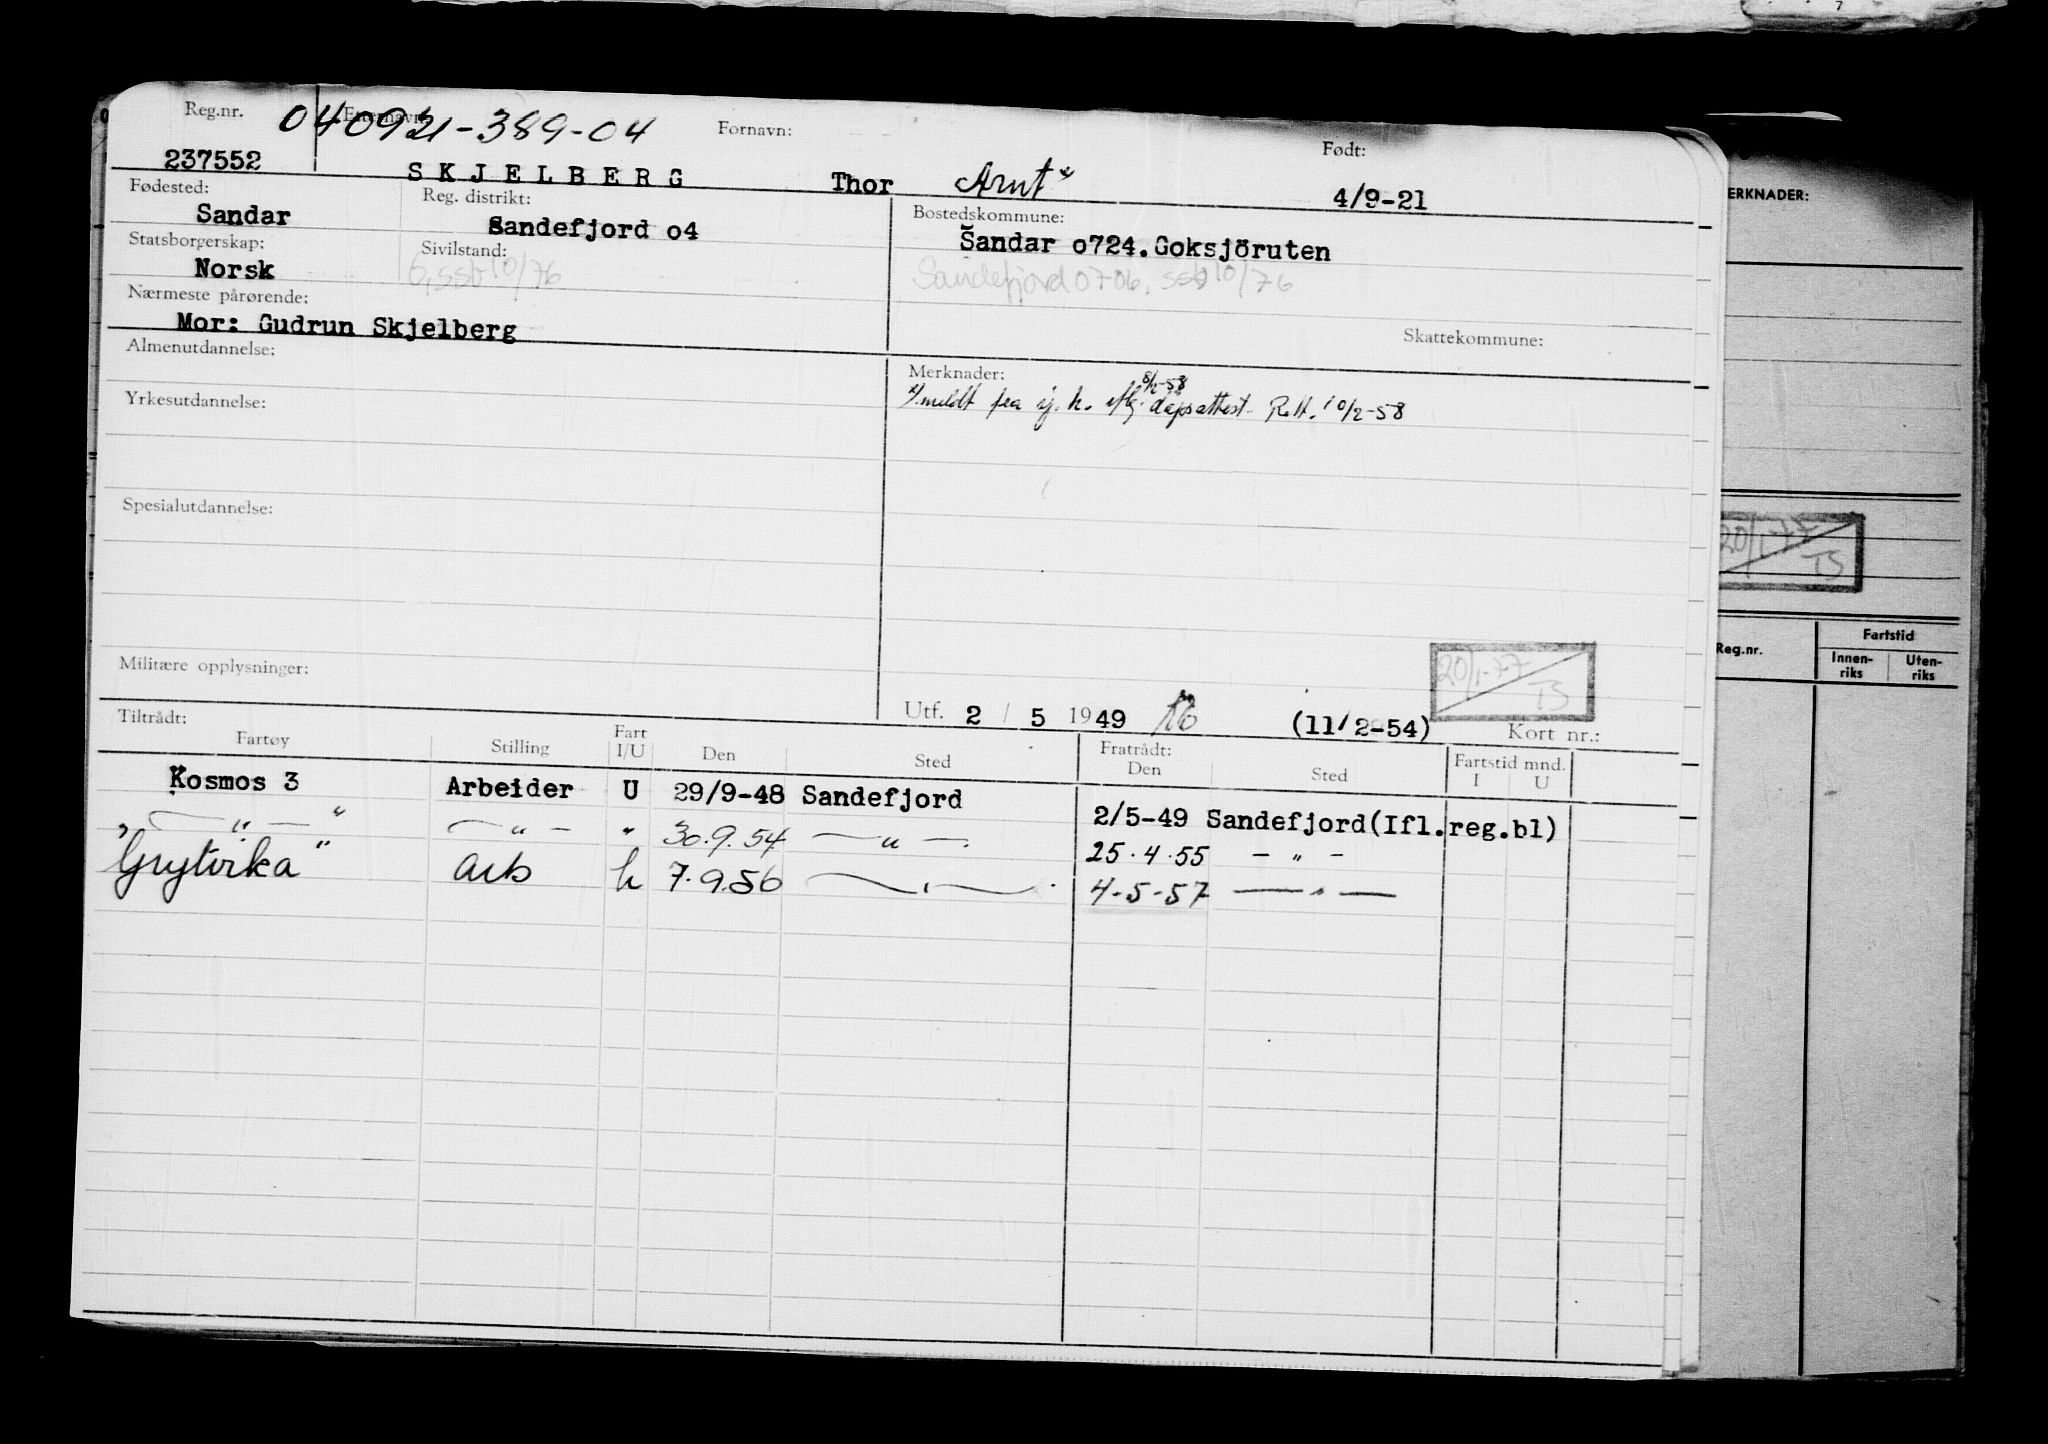 7
Reg.nr. Etternavn: Fornavn: Født:
040921-389-04
237552 SKJELBERG Thor Arnt* 4/9-21
Fødested: Reg. distrikt: Bostedskommune:
Sandar Sandefjord o4 Sandar o724. Goksjöruten
Statsborgerskap: Sivilstand:
Norsk 10/76 Sandefjord 0706, 10/76
Nærmeste pårørende:
Mor: Gudrun Skjelberg
Skattekommune:
Almenutdannelse: Merknader:
meldt fra dåpsattest 10/2-58
Yrkesutdannelse:
Spesialutdannelse:
Militære opplysninger:
20/1-77 TS
Utf. 2 / 5 1949 (11/2-54) Kort nr.:
Tiltrådt: Fratrådt:
Fartøy Stilling Fart I/U Den Sted Den Sted Fartstid mnd. I U
Kosmos 3 Arbeider U 29/9-48 Sandefjord 2/5-49 Sandefjord(Ifl.reg.bl)
— " — " — " — " 30.9.54 — " — 25.4.55 — " —
"Grytvika" Arb U 7.9.56 — " — 4-5-57 — " —
ERKNADER:
20/1-77 TS
Reg.nr. Fartstid
Innen-riks Uten-riks